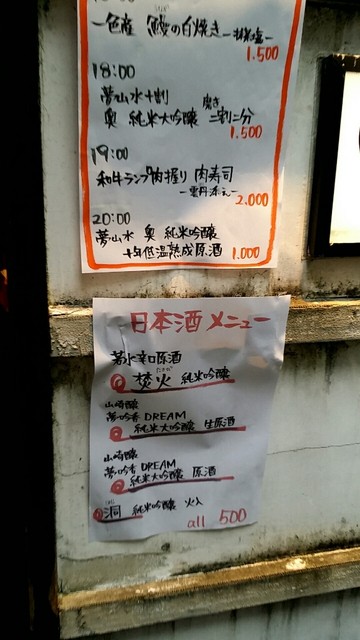 一色産 鰻の白焼き
1.500
18:00
夢山水十割 磨き
奥 純米大吟醸 二割二分
1.500
19:00
和牛ランプ肉握り 肉寿司
ー雲丹添えー
2.000
20:00
夢山水 奥 純米吟醸
十年低温熟成原酒 1.000
日本酒メニュー
若水辛口原酒
焚火 純米吟醸
山崎醸
夢吟香 DREAM
純米大吟醸 生原酒
山崎醸
夢吟香 DREAM
純米大吟醸 原酒
洞 純米吟醸 火入
all 500